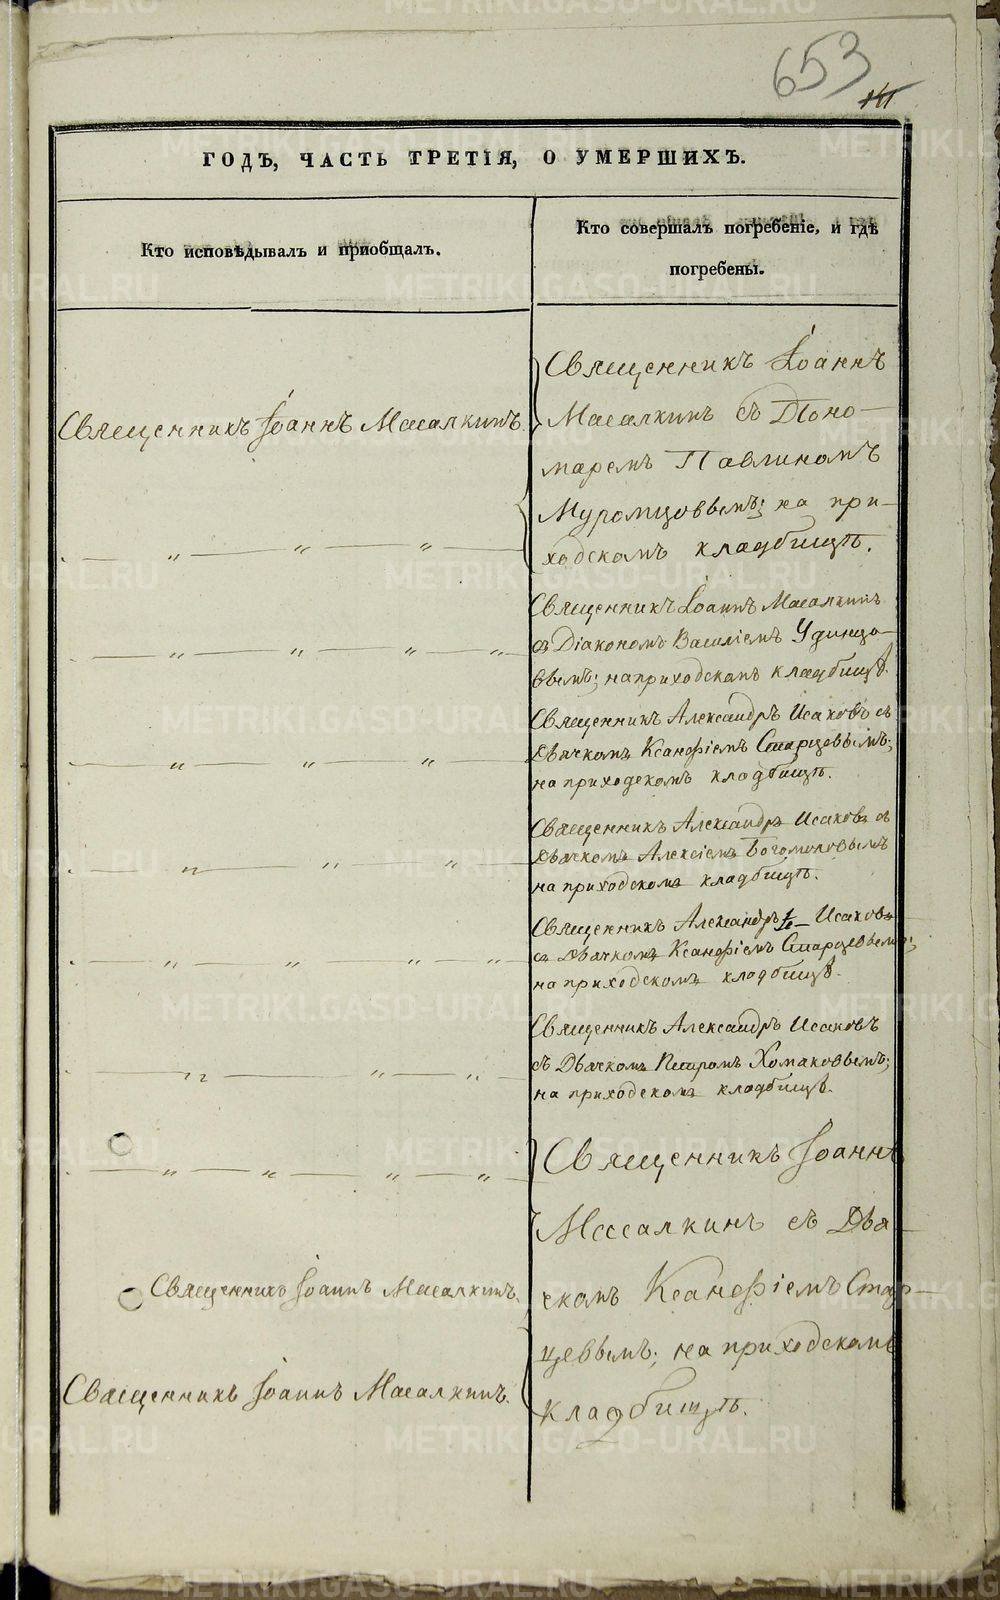 653
ГОДЪ, ЧАСТЬ ТРЕТІЯ, О УМЕРШИХЪ.
Кто исповѣдывалъ и приобщалъ.
Кто совершалъ погребеніе, и гдѣ
погребены.
Священникъ Іоаннъ Масалкинъ
Священникъ Іоаннъ
Масалкинъ съ Поно-
маремъ Павлиномъ
Муромцовымъ; на при-
ходскомъ кладбищѣ.
„ „ „
Священникъ Іоаннъ Масалкинъ
съ Діакономъ Василіемъ Удинцо-
вымъ; на приходскомъ кладбищѣ.
„ „ „ „
Священникъ Александръ Исаковъ съ
Дьячкомъ Ксанѳіемъ Старцевымъ;
на приходскомъ кладбищѣ.
„ „ „
Священникъ Александръ Исаковъ съ
Дьячкомъ Алексіемъ Богомоловымъ
на приходскомъ кладбищѣ.
„ „ „
Священникъ Александръ Исаковъ
съ Дьячкомъ Ксанѳіемъ Старцевымъ;
на приходскомъ кладбищѣ.
„ „ „ „
Священникъ Александръ Исаковъ
съ Дьячкомъ Петромъ Хомяковымъ;
на приходскомъ кладбищѣ.
„ „ „
Священникъ Іоаннъ
Масалкинъ съ Дья-
чкомъ Ксанѳіемъ Стар-
цевымъ; на приходскомъ
кладбищѣ.
„ „ „ „
Священникъ Іоаннъ Масалкинъ.
Священникъ Іоаннъ Масалкинъ.
METRIKI.GASO-URAL.RU